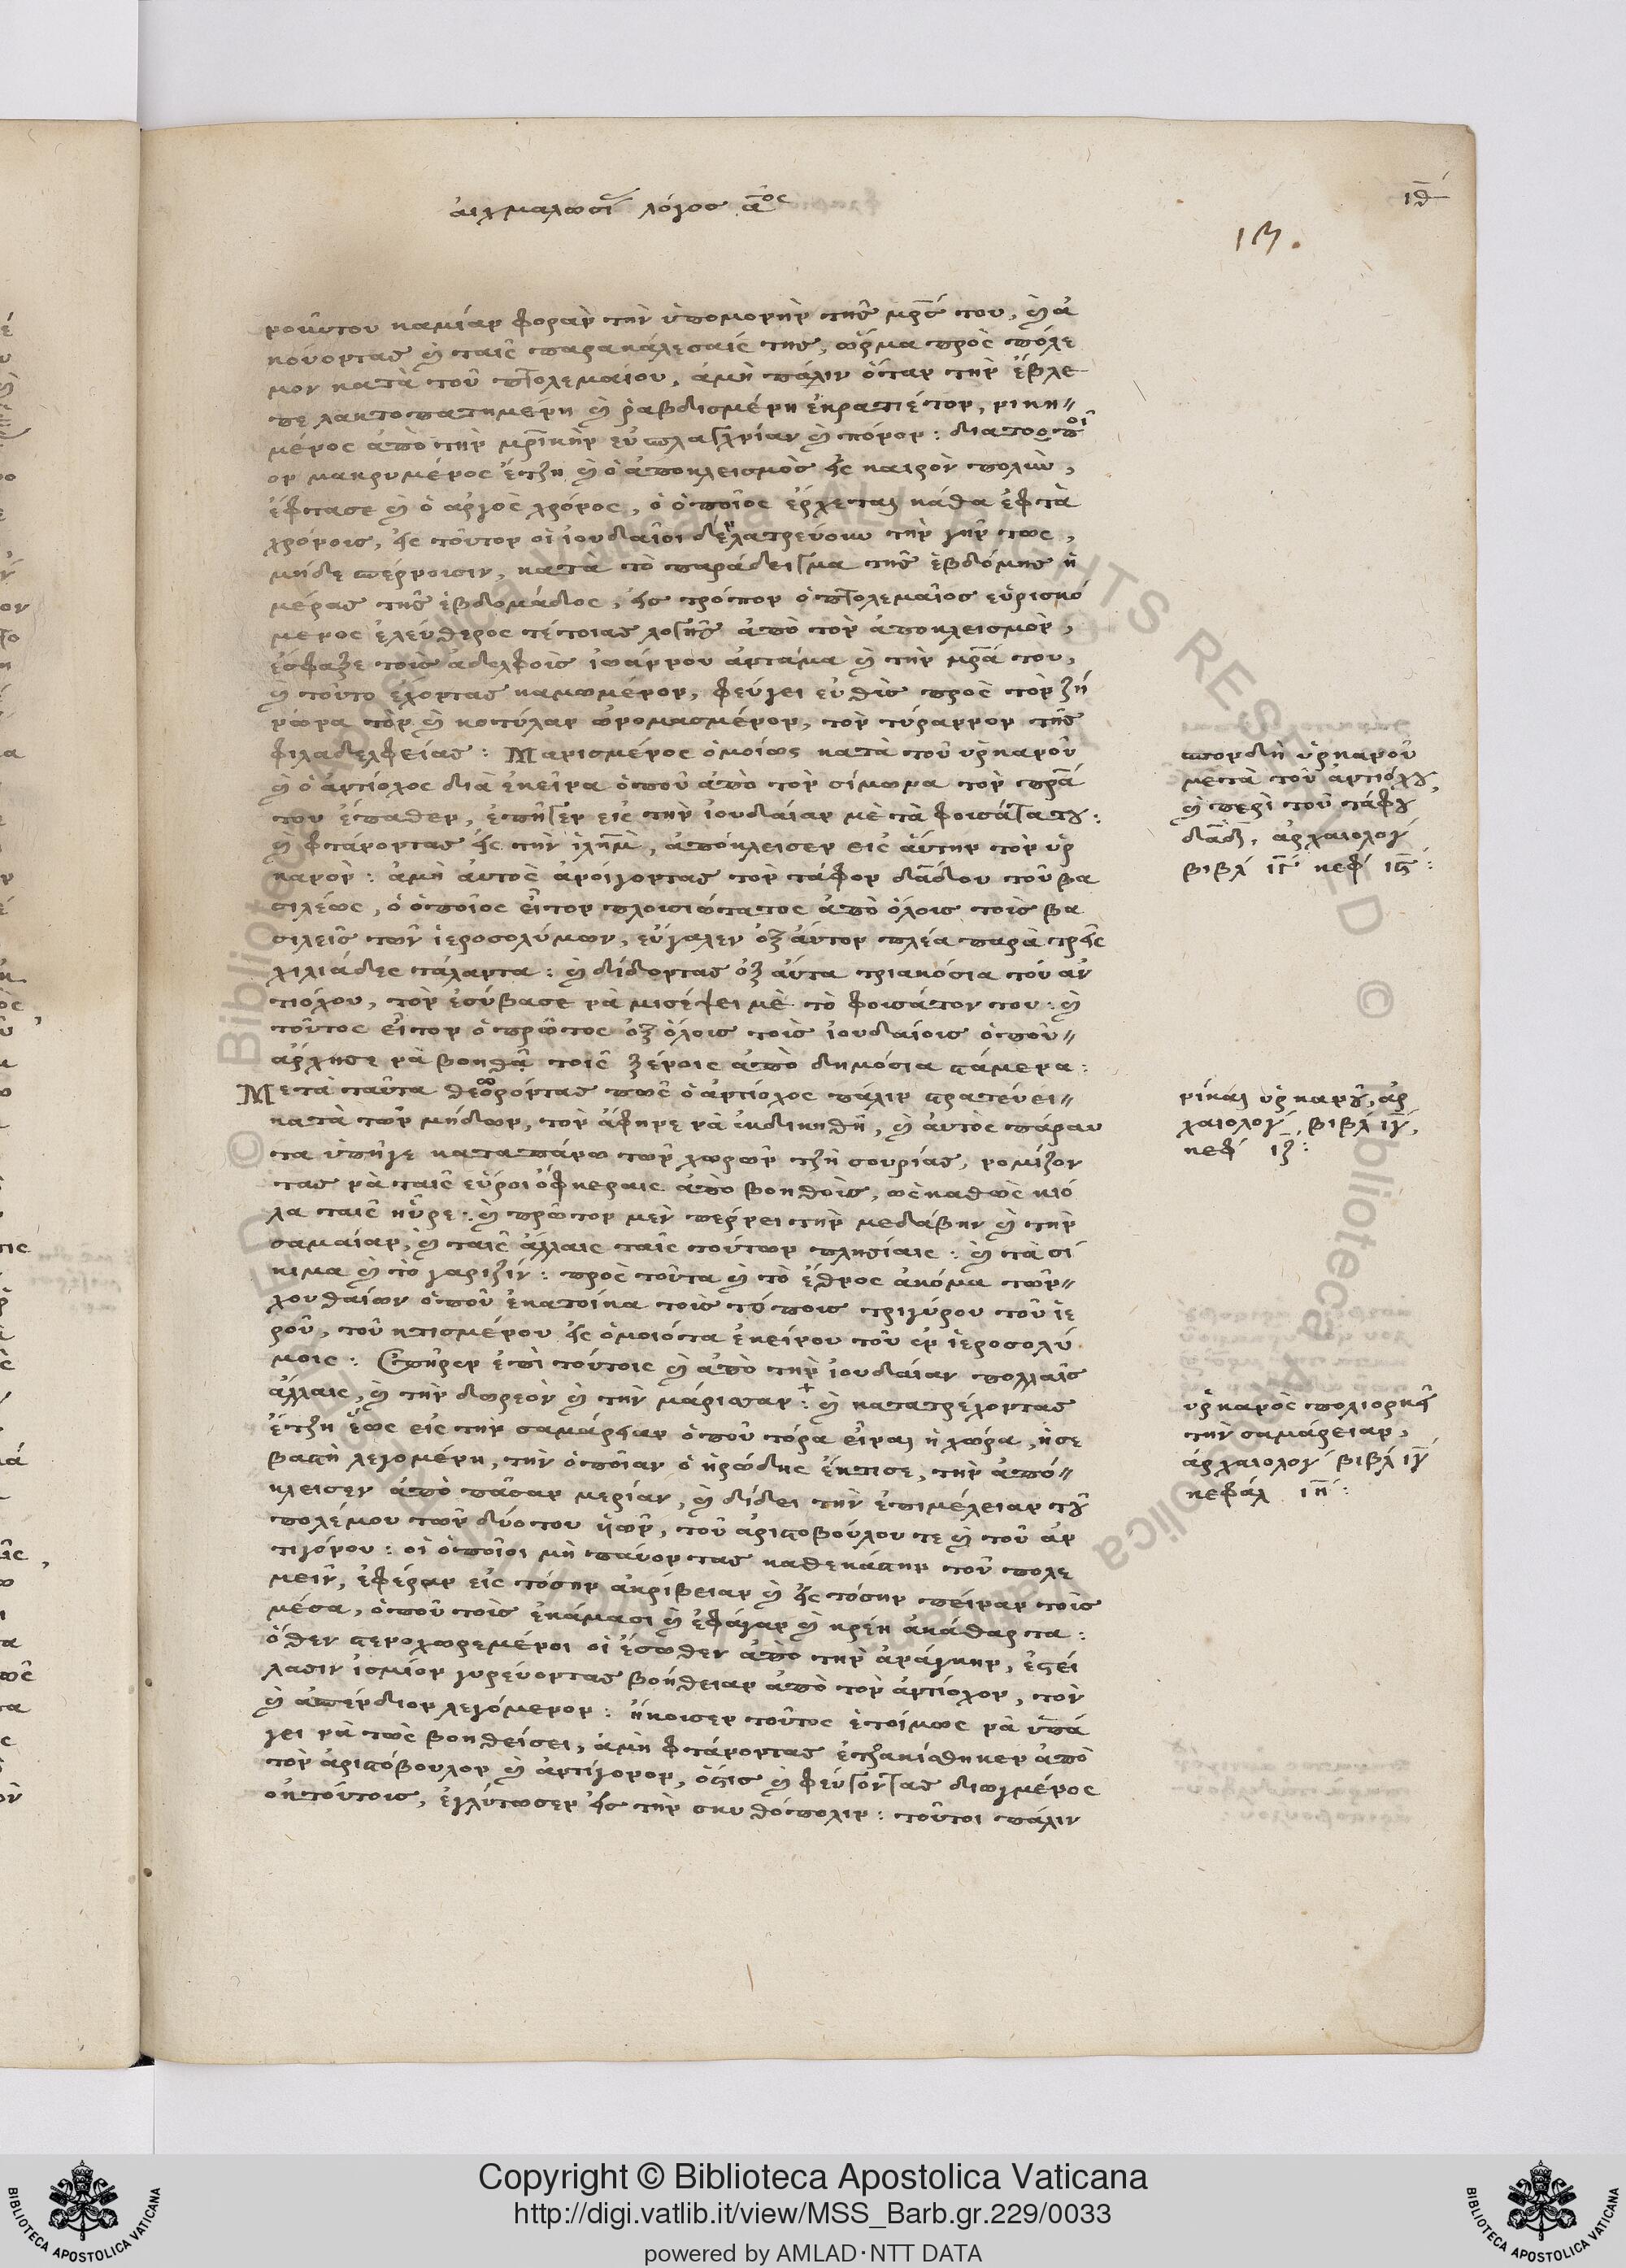 αἰχμαλωσί λόγος αος
ιδ
13.
νοώντου καμίαν φορὰν τὴν ὑπομονὴν τῆς μρς του, καὶ ἀ
κούοντας καὶ ταῖς παρακάλεσαίς της, ὥρμα πρὸς πόλε
μον κατὰ τοῦ πτολεμαίου, ἀμὴ πάλιν ὅταν τὴν ἔβλε
πε λακτοπατημένη καὶ ῥαβδισμένη ἐκρατιέτον, νικη
μένος ἀπὸ τὴν μρικὴν εὐσπλαγχνίαν καὶ πόνον: διατοῦτοι
ον μακρυμένος ἔτζη καὶ ὁ ἀποκλεισμὸς εἰς καιρὸν πολὺν,
ἔφτασε καὶ ὁ ἀργὸς χρόνος, ὁ ὁποῖος ἔρχεται κάθα ἑφτὰ
χρόνοις, εἰς τοῦτον οἱ ἰουδαῖοι δὲν λατρεύουν τὴν γῆν τως,
μήδε σπέρνουσιν, κατὰ τὸ παράδειγμα τῆς ἑβδόμης ἡ
μέρας τῆς ἑβδομάδος, εἰς τρόπον ὁ πτολεμαῖος εὑρισκό
μενος ἐλεύθερος τέτοιας λογῆς ἀπὸ τὸν ἀποκλεισμὸν,
ἔσφαξε τοὺς ἀδελφοὺς ἰωάννου ἀντάμα καὶ τὴν μρα του,
καὶ τοῦτο ἔχοντας καμωμένον, φεύγει εὐθὺς πρὸς τὸν ζή
νωνα τὸν καὶ κοτύλαν ὠνομασμένον, τὸν τύραννον τῆς
φιλαδελφείας: Μανισμένος ὁμοίως κατὰ τοῦ ὑρκανοῦ
καὶ ὁ ἀντίοχος διὰ ἐκεῖνα ὁποῦ ἀπὸ τὸν σίμωνα τὸν πρα
του ἔπαθεν, ἐπῆγεν εἰς τὴν ἰουδαίαν μὲ τὰ φουσάτατου:
καὶ φτάνοντας εἰς τὴν ἰλημ, ἀπόκλεισεν εἰς αὐτην τὸν ὑρ
κανὸν: ἀμὴ αὐτὸς ἀνοίγοντας τὸν τάφον δαδίου τοῦ βα
σιλέως, ὁ ὁποῖος εἶτον πλουσιώτατος ἀπὸ ὅλους τοὺς βα
σιλεῖς τῶν ἱεροσολύμων, εὔγαλεν ὀξ αὐτον πλέα παρὰ τρεῖς
χιλιάδες τάλαντα: καὶ δίδοντας ὀξ αὐτα τριακόσια τοῦ ἀν
τιόχου, τὸν ἐσύβασε νὰ μισέψει μὲ τὸ φουσάτον του: καὶ
τοῦτος εἶτον ὁ πρῶτος ὀξ ὅλους τοὺς ἰουδαίους ὁποῦ
ἄρχησε νὰ βοηθᾶ τοὺς ξένους ἀπὸ δημόσια στάμενα:
Μετὰ ταῦτα θεωρόντας πῶς ὁ ἀντίοχος πάλιν στρατεύει
κατὰ τῶν μήδων, τὸν ἄφηνε νὰ ἐκδικηθῆ, καὶ αὐτὸς πάραυ
τα ὑπῆγε καταπάνω τῶν χωρῶν τζῆ συρίας, νομίζον
τας νὰ ταῖς εὕροι ὄφκεραις ἀπὸ βοηθοὺς, ὡς καθὼς κιό
λα ταῖς ηὗρε: καὶ πρῶτον μὲν πέρνει τὴν μεδάβην καὶ τὴν
σαμαίαν, καὶ ταῖς ἄλλαις ταῖς τούτων πλησίαις: καὶ τὰ σί
κιμα καὶ τὸ γαριζὶν: πρὸς τοῦτα καὶ τὸ ἔθνος ἀκόμα τῶν
χουθαίων ὁποῦ ἐκατοίκα τοὺς τόπους τριγύρου τοῦ ἱε
ροῦ, τοῦ κτισμένου εἰς ὁμοιότα ἐκείνου τοῦ ἐν ἱεροσολύ
μοις: Ἐπῆρεν ἐπὶ τούτοις καὶ ἀπὸ τὴν ἰουδαίαν πολλαῖς
ἄλλαις, καὶ τὴν δωρεὸν καὶ τὴν μάρισσαν: καὶ κατατρέχοντας
ἔτζη ἕως εἰς τὴν σαμάρειαν ὁποῦ τόρα εἶναι ἡ χώρα, ἡ σε
βαστὴ λεγομένη, τὴν ὁποῖαν ὁ ἡρώδης ἔκτισε, τὴν ἀπό
κλεισεν ἀπὸ πᾶσαν μερίαν, καὶ δίδει τὴν ἐπιμέλειαν τοῦ
πολέμου τῶν δύοτου ὑῶν, τοῦ ἀριστοβούλου τε καὶ τοῦ ἀν
τιγόνου: οἱ ὁποῖοι μὴ παύοντας καθεκάστην τοῦ πολε
μεῖν, ἐφέραν εἰς τόσην ἀκρίβειαν καὶ εἰς τόσην πεῖναν τοὺς
μέσα, ὁποῦ τοὺς ἐκάμασι καὶ ἐφάγαν καὶ κρέη ἀκάθαρτα:
ὅθεν στενοχωρεμένοι οἱ ἔσωθεν ἀπὸ τὴν ἀνάγκην, ἐστεί
λασιν γυρεύοντας βοήθειαν ἀπὸ τὸν ἀντίοχον, τὸν
καὶ ἀσπένδιον λεγόμενον: ἤκουσεν τοῦτος ἑτοίμως νὰ ὑπά
γει νὰ τὼς βοηθείσει, ἀμὴ φτάνοντας ἐτζακίσθηκεν ἀπὸ
τὸν ἀριστόβουλον καὶ ἀντίγονον, ὅστις καὶ φευγόντας διωγμένος
ἐκ τούτους, ἐγλύτωσεν εἰς τὴν σκυθόπολιν: τοῦτοι πάλιν
σπονδὴ ὑρκανοῦ
μετὰ τοῦ ἀντιόχου,
καὶ περὶ τοῦ τάφου
δαδ. ἀρχαιολογ
βιβλ ιγ κεφ ις:
νίκαι ὑρκανοῦ, ἀρ
χαιολογ βιβλ ιγ,
κεφ ιζ:
ὑρκανὸς πολιορκεῖ
τὴν σαμάρειαν,
ἀρχαιολογ βιβλ ιγ
κεφάλ ιη:
Copyright © Biblioteca Apostolica Vaticana
http://digi.vatlib.it/view/MSS_Barb.gr.229/0033
powered by AMLAD·NTT DATA
BIBLIOTECA APOSTOLICA VATICANA
BIBLIOTECA APOSTOLICA VATICANA